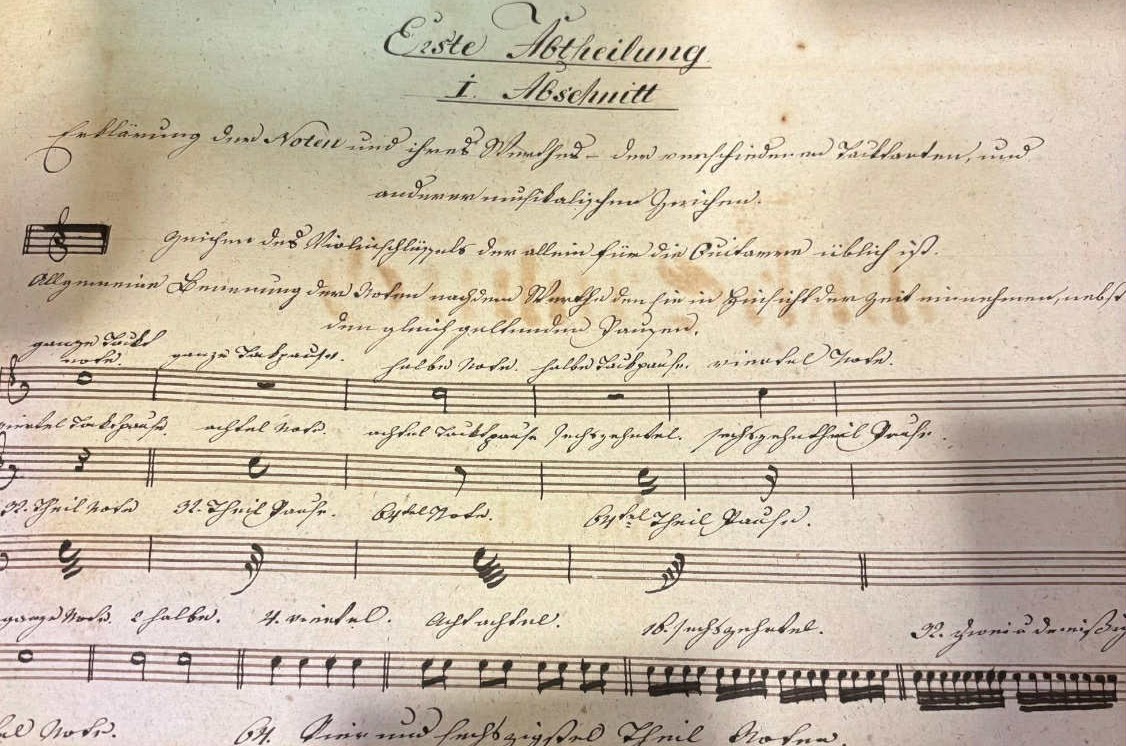 Erste Abtheilung
I. Abschnitt
Erklärung der Noten und ihres Werthes – der verschiedenen Tacktarten, und
anderer musikalischen Zeichen.
Zeichen des Violinschlüssels der allein für die Guitarre üblich ist.
Allgemeine Benennung der Noten nach dem Werthe den sie in Hinsicht der Zeit einnehmen, nebst
den gleich geltenden Pausen.
ganze Tackt
note. ganze Tackpause. halbe Note. halbe Tackpause. viertel Note.
viertel Tacktpause. achtel Note. achtel Tacktpause sechszehntel. sechszehntheil Pause.
32. Theil Note 32. Theil Pause. 64tel Note. 64tel Theil Pause.
ganze Note. 2 halbe. 4. viertel. Acht achtel. 16. sechszehntel. 32. zwei u dreißig
tel Note. 64. Vier und sechszigstel Theil Noten.